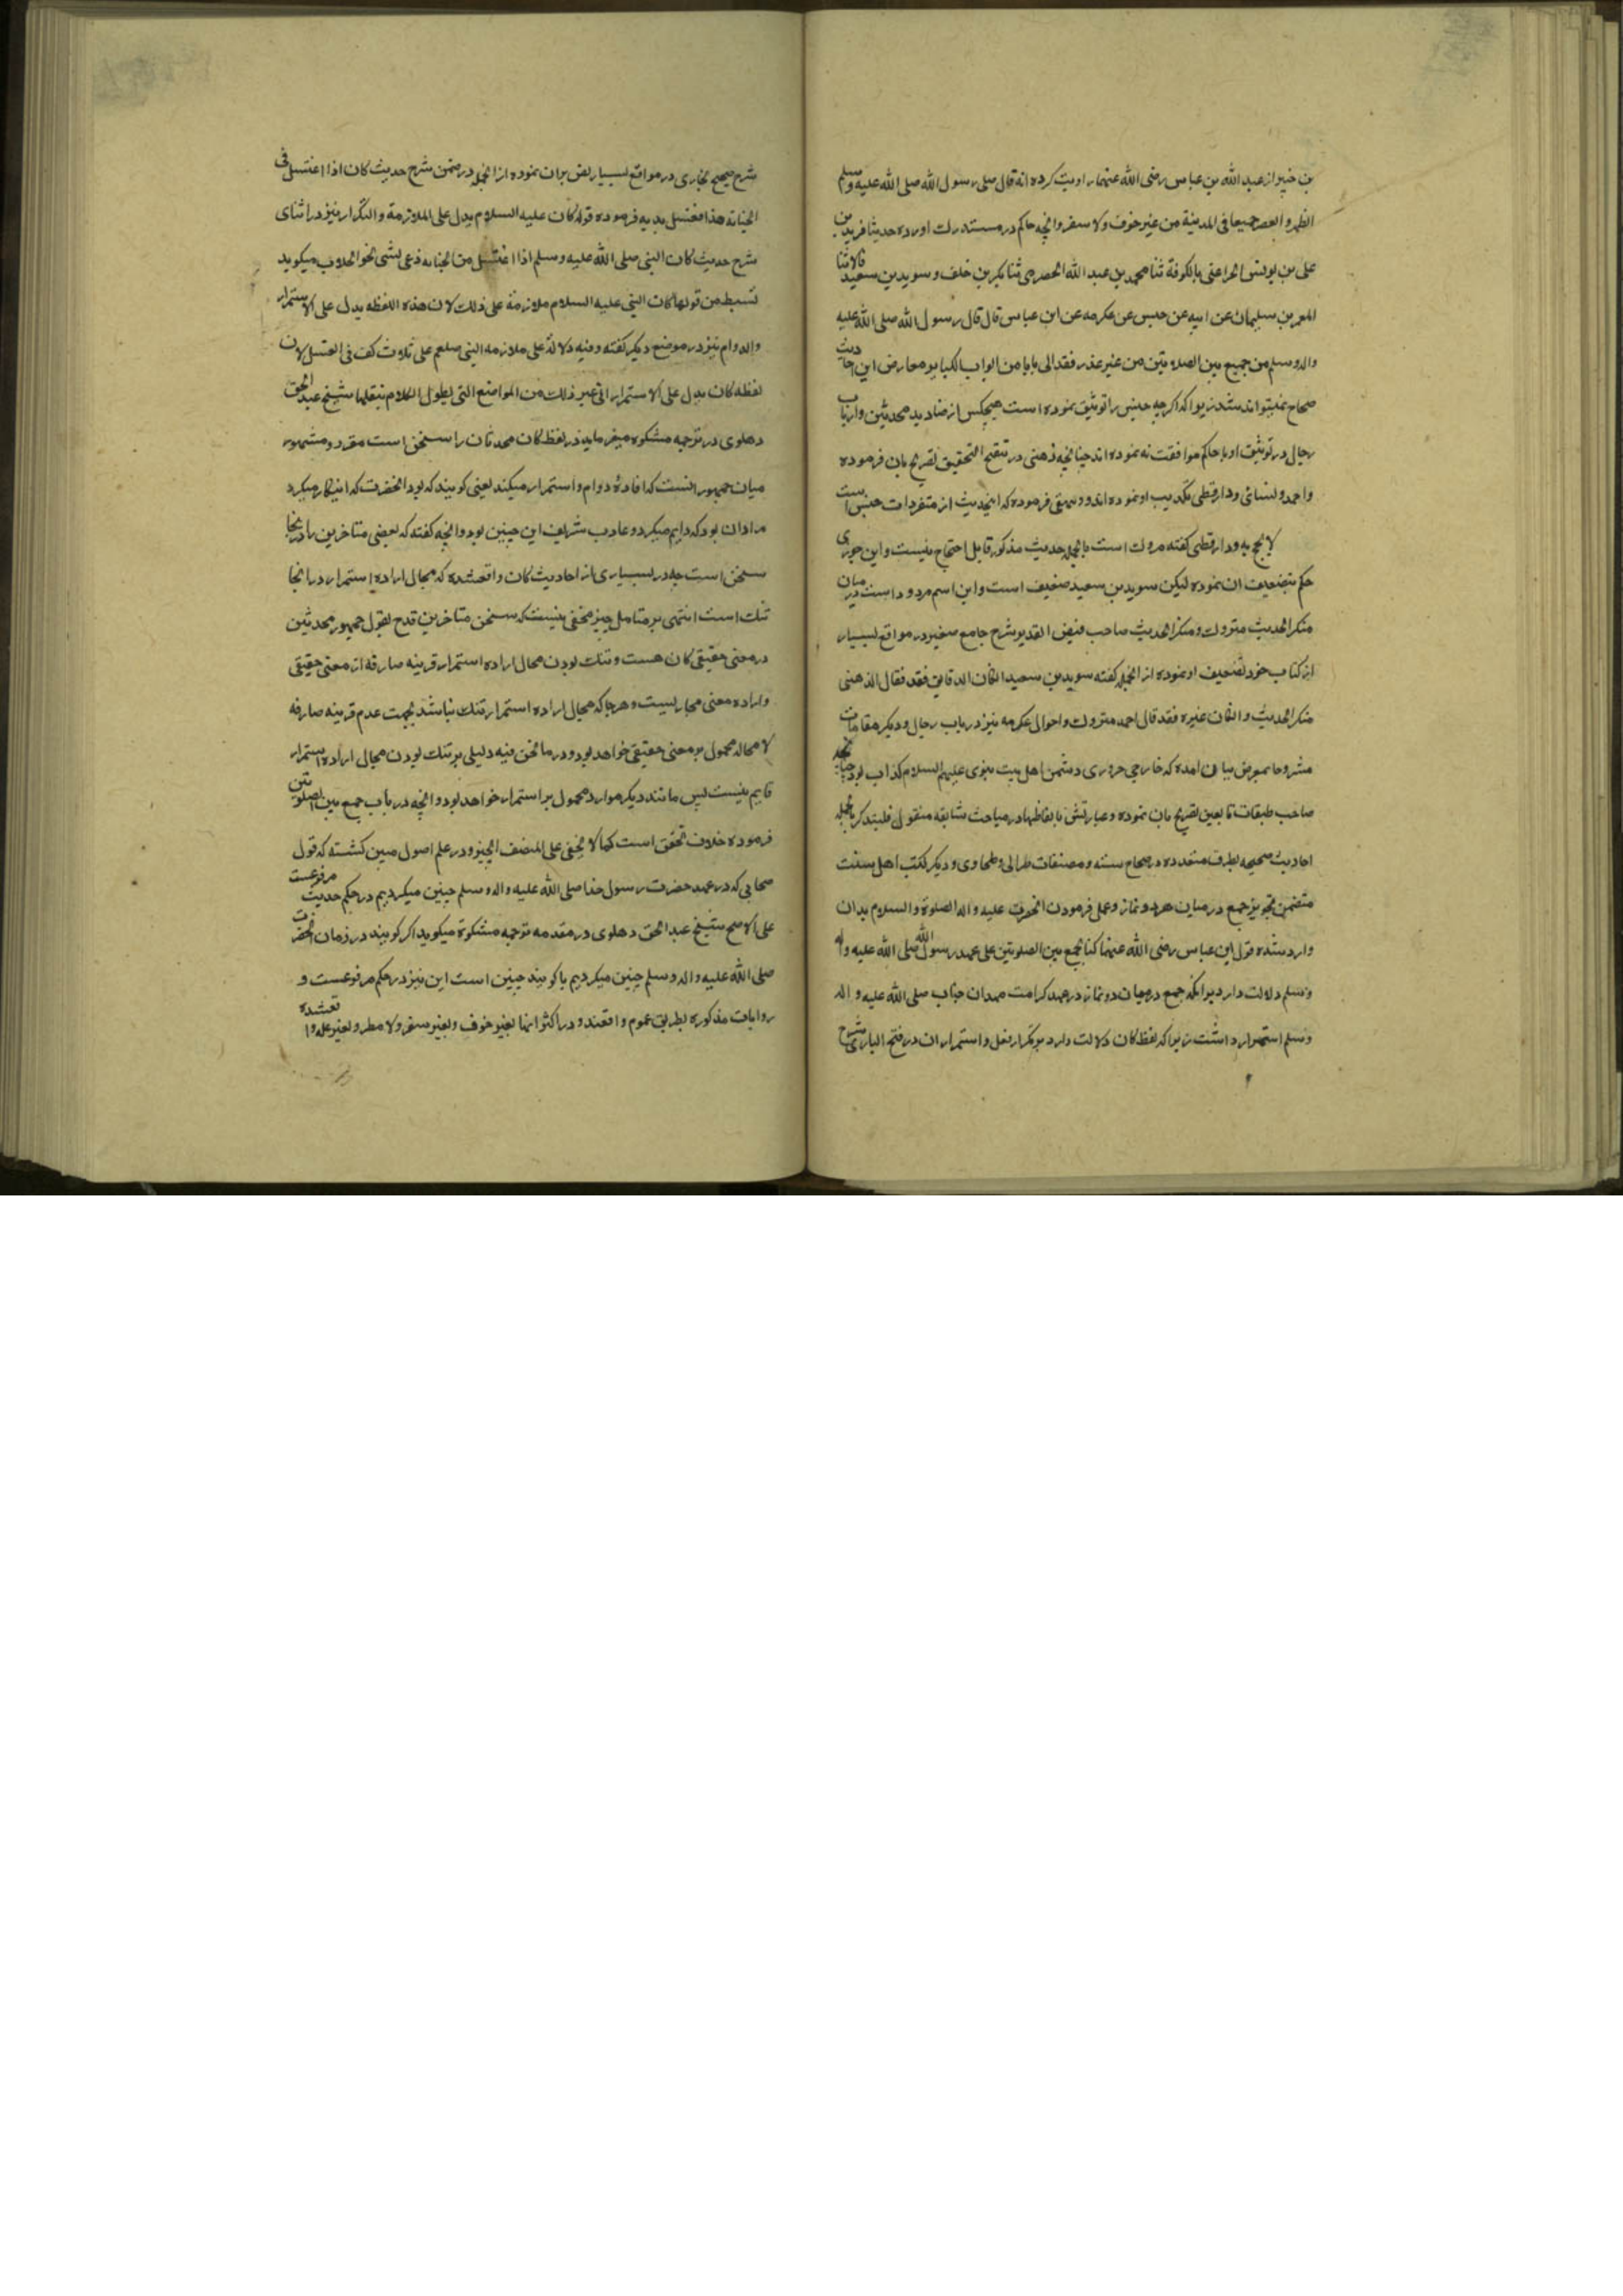 بن خبیر از عبد الله بن عباس رضی الله عنهما روایت کرده انه قال صلی رسول الله صلی الله علیه وسلم
الظهر و العصر جمیعا فی المدینة من غیر خوف ولا سفر وانچه حاکم در مستدرک اورده حدیثا فرید بن
علی بن یونس الخزاعنی بالکوفة ثنا محمد بن عبد الله الحضرمی ثنا بکر بن خلف و سوید بن سعید قالا ثنا
المعمر بن سلیمان عن ابیه عن حبس عن عکرمه عن ابن عباس قال قال رسول الله صلی الله علیه
واله وسلم من جمع بین الصلوتین من غیر عذر فقد اتی بابا من ابواب الکبایر معارض این احادیث
صحاح نمیتواند شد زیرا که اکرچه حبس را توثیق نموده است هیچکس از صنادید محدثین وارباب
رجال در توثیق او با حاکم موافقت نه نموده اند چنانچه ذهبی در تنقیح التحقیق تصریح بان فرموده
واحمد ونسائی ودارقطنی تکذیب او نموده اند و بیهقی فرموده که اینحدیث از متفردات حبس است
لا یحتج به و دارقطنی کفته متروک است بالجمله حدیث مذکور قابل احتجاج نیست و ابن جوزی
حکم بتضعیف ان نموده لیکن سوید بن سعید ضعیف است و این اسم مردود است در میان
منکر الحدیث متروک و منکر الحدیث صاحب فیض القدیر شرح جامع صغیر در مواقع بسیار
از کتاب خود تضعیف او نموده از انجمله کفته سوید بن سعید ان کان الدقاق فقد فقال الذهبی
منکر الحدیث وان کان غیره فقد قال احمد متروک واحوال عکرمه نیز در باب رجال و دیکر مقامات
مشروحا بمعرض بیان امده که خارجی حروری دشمن اهل بیت نبوی علیهم السلام کذاب بود چنانچه
صاحب طبقات تابعین تصریح بان نموده و عبارتش بالفاظها در مباحث سابقه منقول فلیتذکر بالجمله
احادیث صحیحه بطرق متعدده در صحاح سته و مصنفات طبرانی و طحاوی و دیکر کتب اهل سنت
متضمن تجویز جمع در میان هر دو نماز و عمل فرمودن انحضرت علیه و اله الصلوة والسلام بدان
وارد شده قول ابن عباس رضی الله عنهما کنا نجمع بین الصلوتین علی عهد رسول الله صلی الله علیه و اله
وسلم دلالت دارد برانکه جمع درمیان دو نماز در عهد کرامت مهدان جناب صلی الله علیه و اله
وسلم استمرار داشت زیرا که لفظ کان دلالت دارد بر تکرار فعل و استمرار ان در فتح الباری شرح
شرح صحیح بخاری در مواقع بسیار نص بران نموده از انجمله در ضمن شرح حدیث کان اذا اغتسل فی
الجنابة هذا فغسل یدیه فرموده قوله کان علیه السلام یدل علی الملازمة والتکرار نیز در اثنای
شرح حدیث کان النبی صلی الله علیه وسلم اذا اغتسل من الجنابه دعی بشی نحو الحلاب میکوید
من قولها کان النبی علیه السلام ملازمة علی ذلک لان هذه اللفظه یدل علی الاستمرار
والدوام نیز در موضع دیکر کفته وفیه دلالة علی ملازمه النبی صلعم علی ثلاث کف فی الغسل لان
لفظه کان یدل علی الاستمرار الی غیر ذلک من المواضع التی یطول الکلام بنقلها شیخ عبد الحق
دهلوی در ترجمه مشکوه میفرماید در لفظ کان محدثان را سخن است مقرر و مشهور
میان جمهور انست که افادۀ دوام و استمرار میکند یعنی کویند که بود انحضرت که اینکار میکرد
مراد ان بود که دایم میکرد و عادت شریف این چنین بود وانچه کفته که بعضی متاخرین را در اینجا
سخن است چه در بسیاری از احادیث کان واقعشده که مجال اراده استمرار در انجا
تنک است انتهی بر متامل چیز مخفی نیست که سخن متاخرین قدح بقول جمهور محدثین
در معنی حقیقی کان هست و تنک بودن مجال اراده استمرار قرینه صارفه از معنی حقیقی
واراده معنی مجازیست و هرجا که مجال اراده استمرار تنک نباشد بجهت عدم قرینه صارفه
لا محاله محمول بر معنی حقیقی خواهد بود و در ما نحن فیه دلیلی بر تنک بودن مجال اراده استمرار
قایم نیست پس مانند دیکر موارد محمول بر استمرار خواهد بود وانچه در باب جمع بین الصلوتین
فرموده خلاف تحقق است کما لا یخفی علی المنصف الخبیر و در علم اصول مبین کشته که قول
صحابی که در عهد حضرت رسول خدا صلی الله علیه واله وسلم چنین میکردیم در حکم حدیث مرفوعست
علی الاصح شیخ عبد الحق دهلوی در مقدمه ترجمه مشکوة میکوید اکر کویند در زمان انحضرت
صلی الله علیه واله وسلم چنین میکردیم یا کویند چنین است این نیز در حکم مرفوعست و
روایات مذکوره بطریق عموم واقعند و در اکثر انها بغیر خوف و بغیر سفر ولا مطر و بغیر عله واقعشده